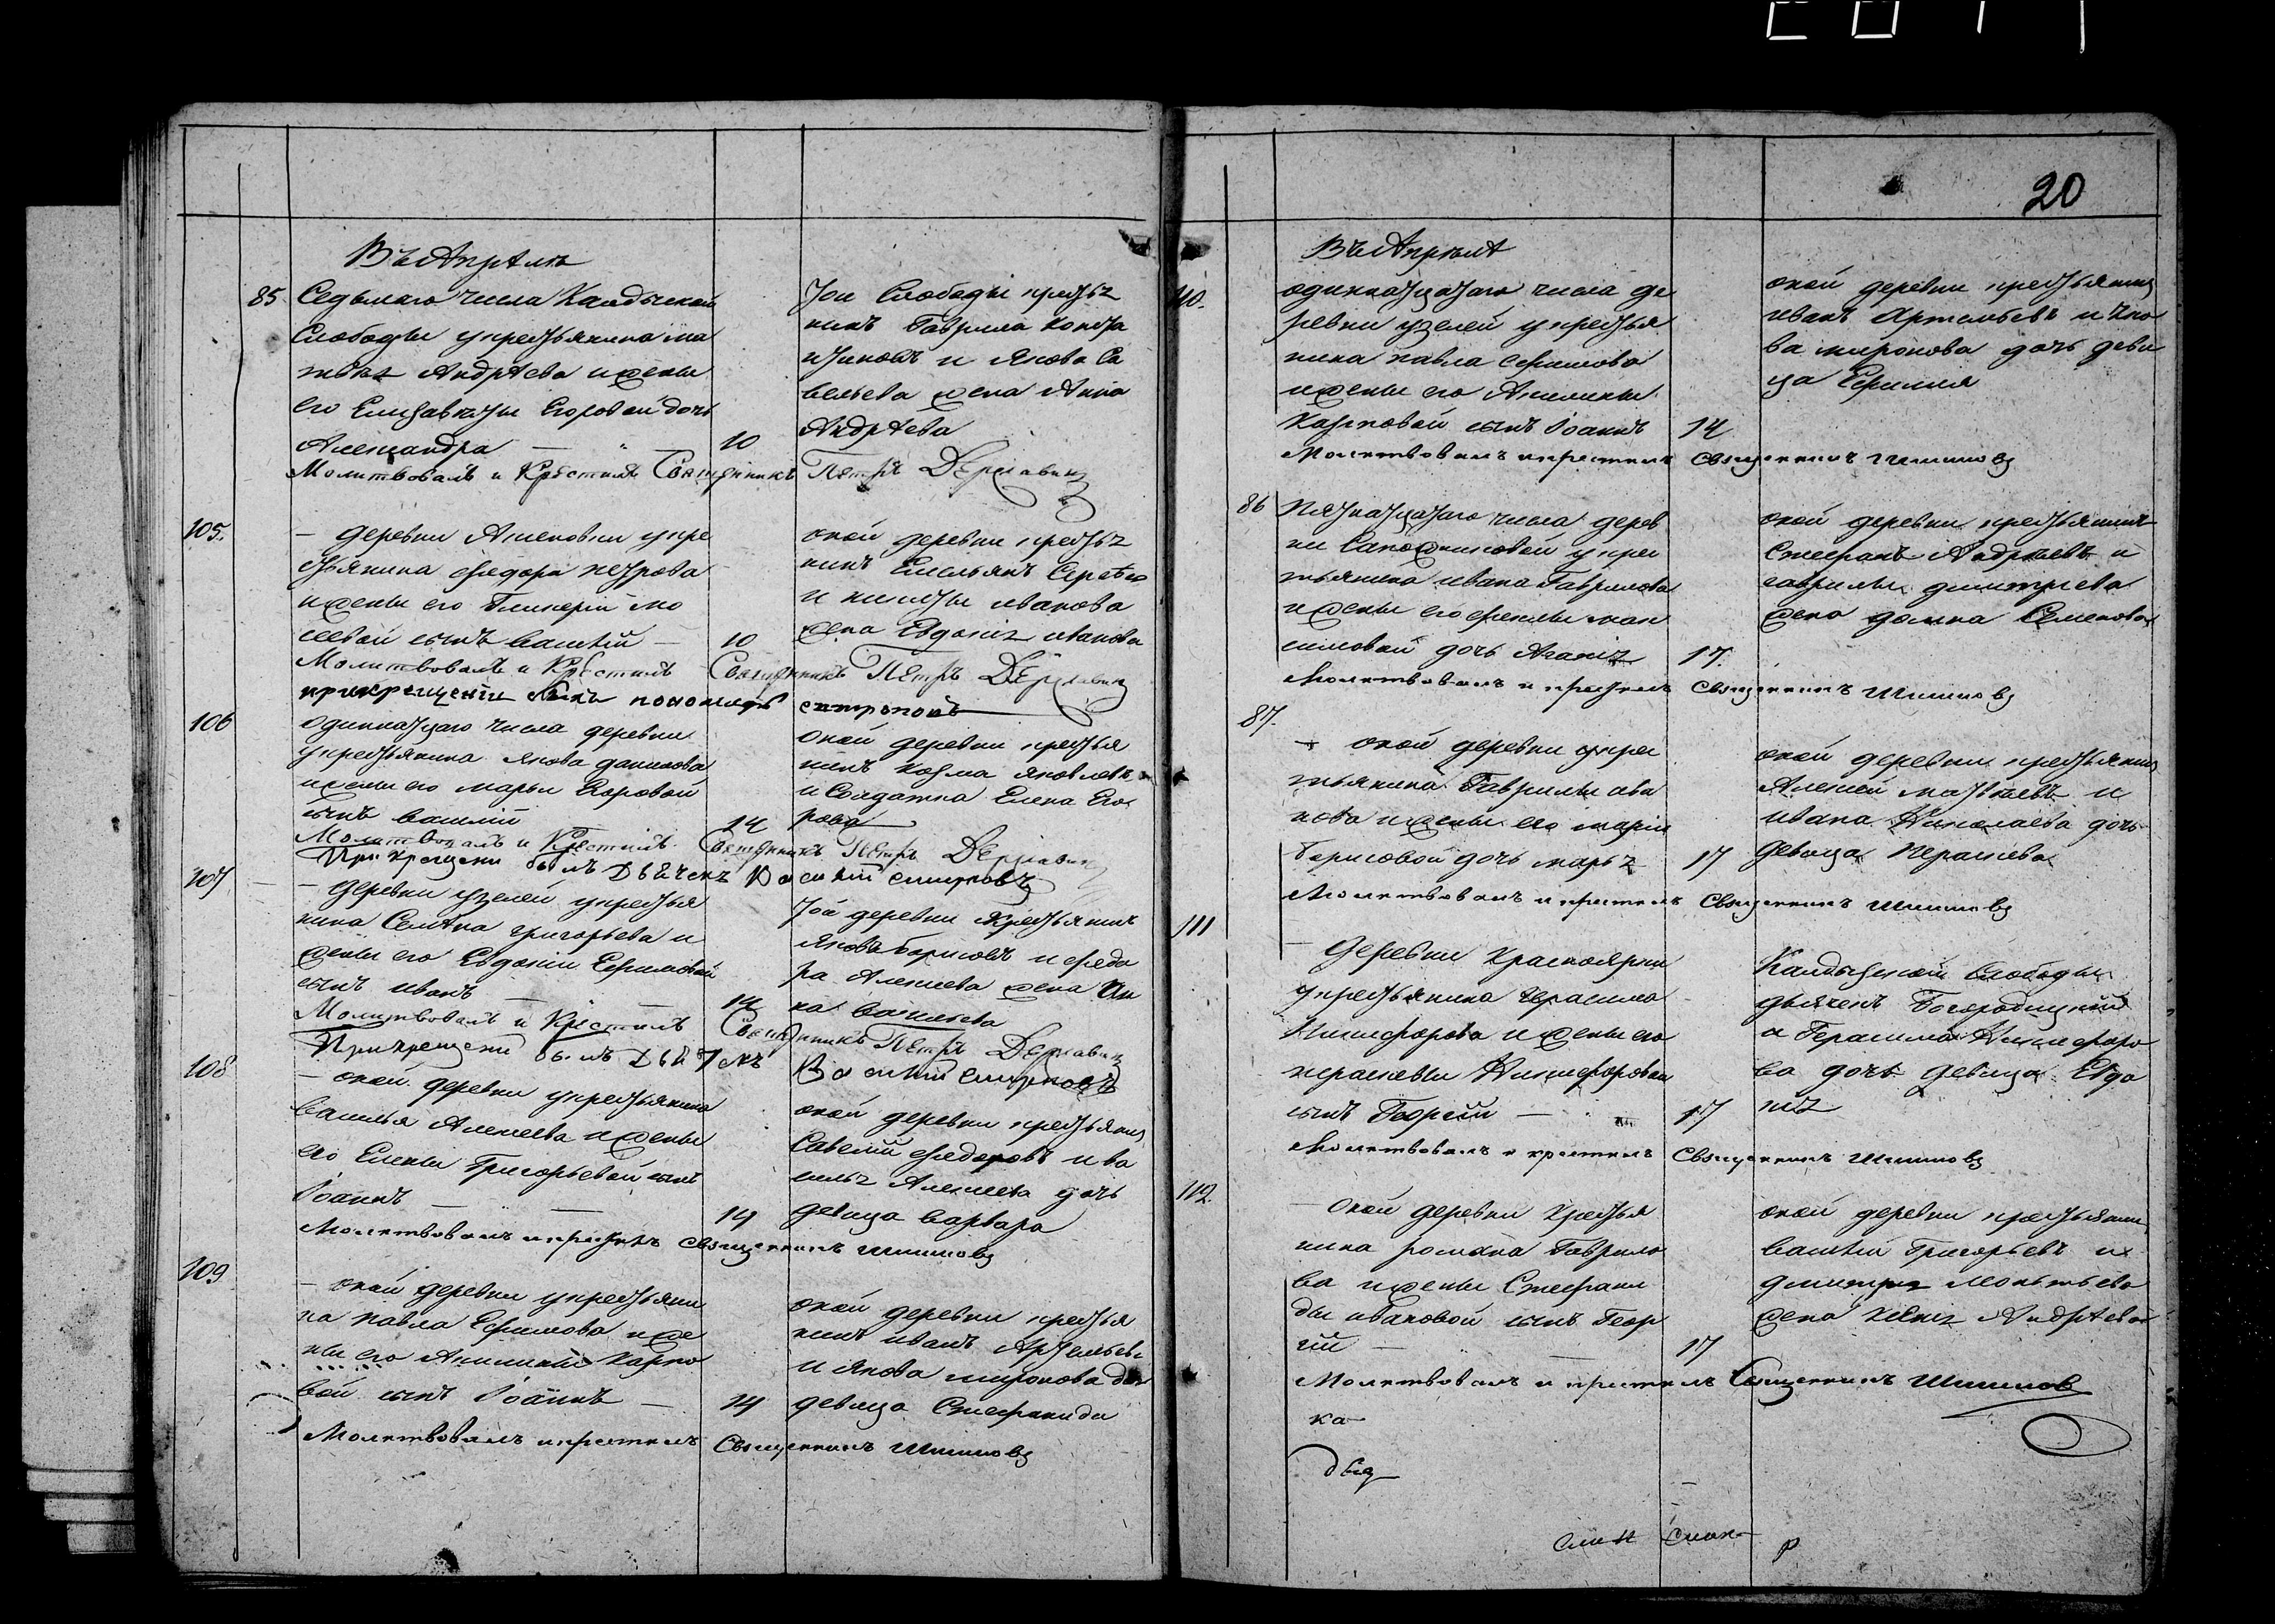 20
Въ Апрѣлѣ
85. Седьмаго числа Калдыской
Слободы укрестьянина ма
твея Андрѣева ижены
его Елизаветы Егоровой дочь
Александра — 10
той Слободы кресть
нинъ Гаврила Кондра
тьиновъ и Якова Са
вельева жена Анна
Андрѣева
Молитвовалъ и Крѣстилъ Священникъ Петръ Державинъ
105. — деревни укре
стьянина Федора петрова
ижены его Гликеріи Мо
сеевой сынъ Василій — 10
оной деревни кресть
нинъ Емельянъ Сергѣев
и никиты иванова
жена Евдокія иванова
Молитвовалъ и Крѣстилъ Священникъ Петръ Державинъ
прикрещеніи былъ пономарь
106 одиннатцаго числа деревни
укрестьянина Якова данилова
ижены его марьи Егоровой
сынъ Василій 14
оной деревни крестья
нинъ Козма Яковлевъ
и Солдатка Елена Его
рова
Молитвовалъ и Крѣстилъ Священникъ Петръ Державинъ
При Крещени былъ Дьячекъ Василій Смирновъ
107 — деревни узелей укрестья
нина Семѣна григорьева и
жены его Евдокіи Ефимовой
сынъ иванъ — 14
той деревни Крестьянинъ
Яковъ борисовъ и федо
ра Алексеева жена Ан
на Васильева
Молитвовалъ и Крѣстилъ Священникъ Петръ Державинъ
Прикрещени былъ Дьячекъ Василій Смирновъ
108 — оной деревни укрестьянина
Василья Алексеева ижены
его Елены Григорьевой сынъ
Іоаннъ — 14
оной деревни крестьянин
Савелій федоровъ и ва
силья Алексеева дочь
девица варвара
Молитвовалъ и крестилъ священникъ Шишковъ
109 — оной деревни укрестьяни
на павла Ефимова иже
ны его Акилины Карпо
вой сынъ Іоаннъ — 14
оной деревни крестья
нинъ иванъ Артемьевъ
и Якова миронова дочь
девица Стефанида
Молитвовалъ и крестилъ Священникъ Шишковъ
Въ Апрѣлѣ
110. одиннатцатаго числа де
ревни узелей укрестья
нина павла Ефимова
ижены его Акилины
Карповой сынъ Іоаннъ 14
оной деревни крестьянинъ
иванъ Артемьевъ и Яко
ва миронова дочь деви
ца Ефимия
Молитвовалъ и крестилъ священникъ Шишковъ
86 Пятнатцатаго числа дерев
ни Сапожниковой укрес
тьянина ивана Гаврилова
ижены его феклы мак
симовой дочь Агафія 17.
оной деревни крестьянинъ
Стефанъ Андреевъ и
гаврилы дмитриева
жена домна Семенова
Молитвовалъ и крестилъ священникъ Шишковъ
87. — оной деревни укрес
тьянина Гаврилы ива
нова ижены его марии
борисовой дочь марья 17
оной деревни крестьянинъ
Алексей матвеевъ и
ивана Николаева дочь
девица Парасковья
Молитвовалъ и крестилъ Священникъ Шишковъ
111 — деревни Красноярки
укрестьянина герасима
Никифорова и жены его
парасковьи Никифоровой
сынъ Георгій — 17
Калдыской Слободы
дьячекъ Богородицкій
и Герасима Никифоро
ва дочь девица Евдо
кія
Молитвовалъ и крестилъ Священникъ Шишковъ
112. — Оной деревни крестья
нина романа Гаврило
ва ижены Стефани
ды ивановой сынъ Геор
гій — 17
оной деревни крестьянин
Василій Григорьевъ и
дмитрия
жена Андрѣева
Молитвовалъ и крестилъ Священникъ Шишковъ
ка